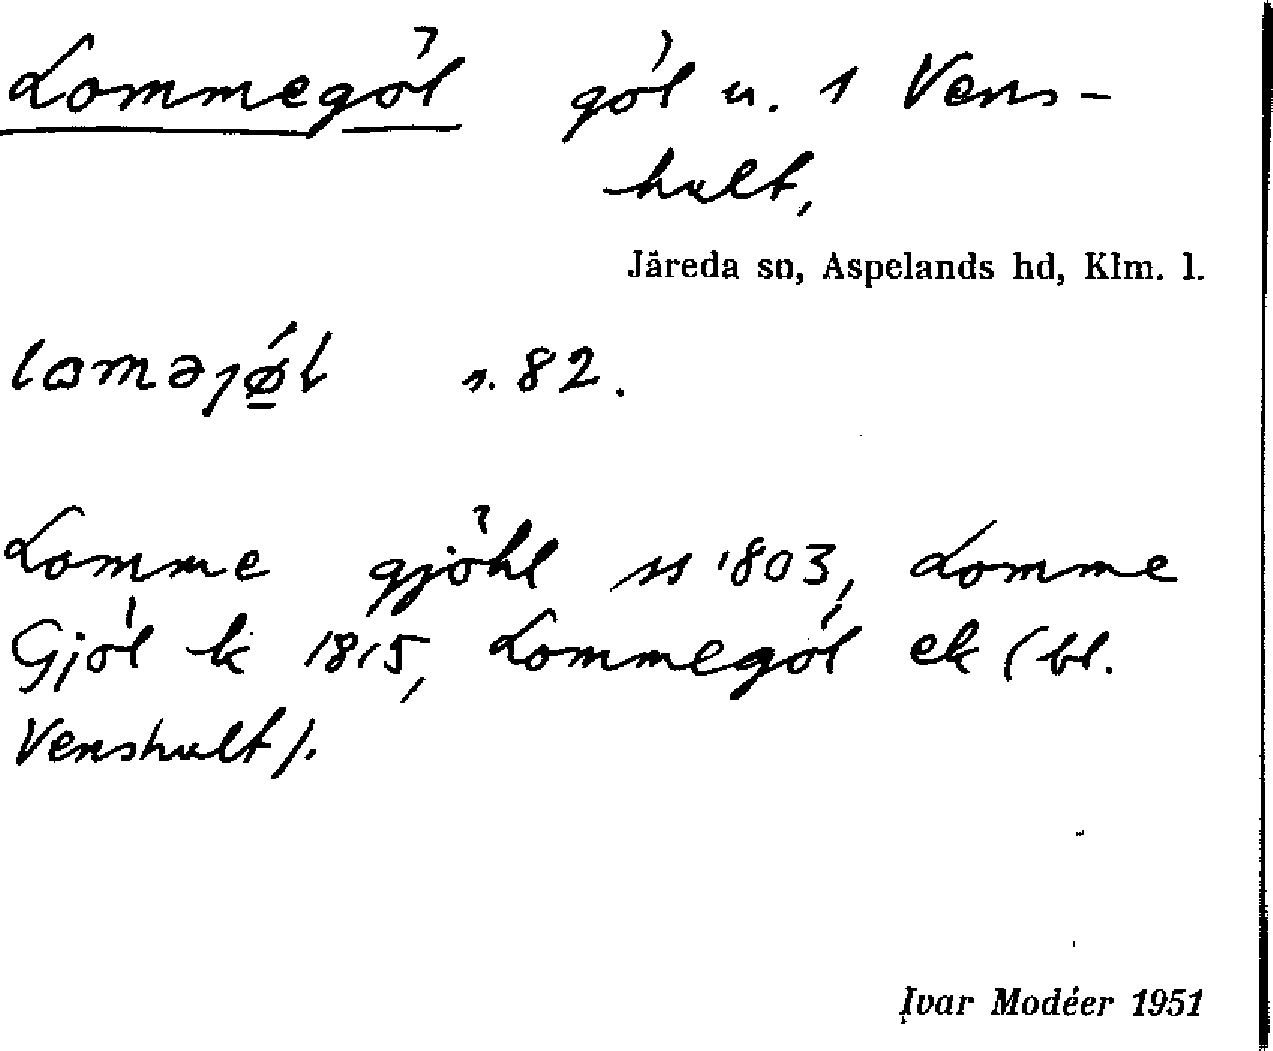 Lommegöl göl u. 1 Vens-
hult,
Järeda sn, Aspelands hd, Klm. l.
s. 82.
Lomme gjöhl ss 1803, Lomme
Gjöl lk 1815, Lommegöl ek (bl.
Venshult).
Ivar Modéer 1951